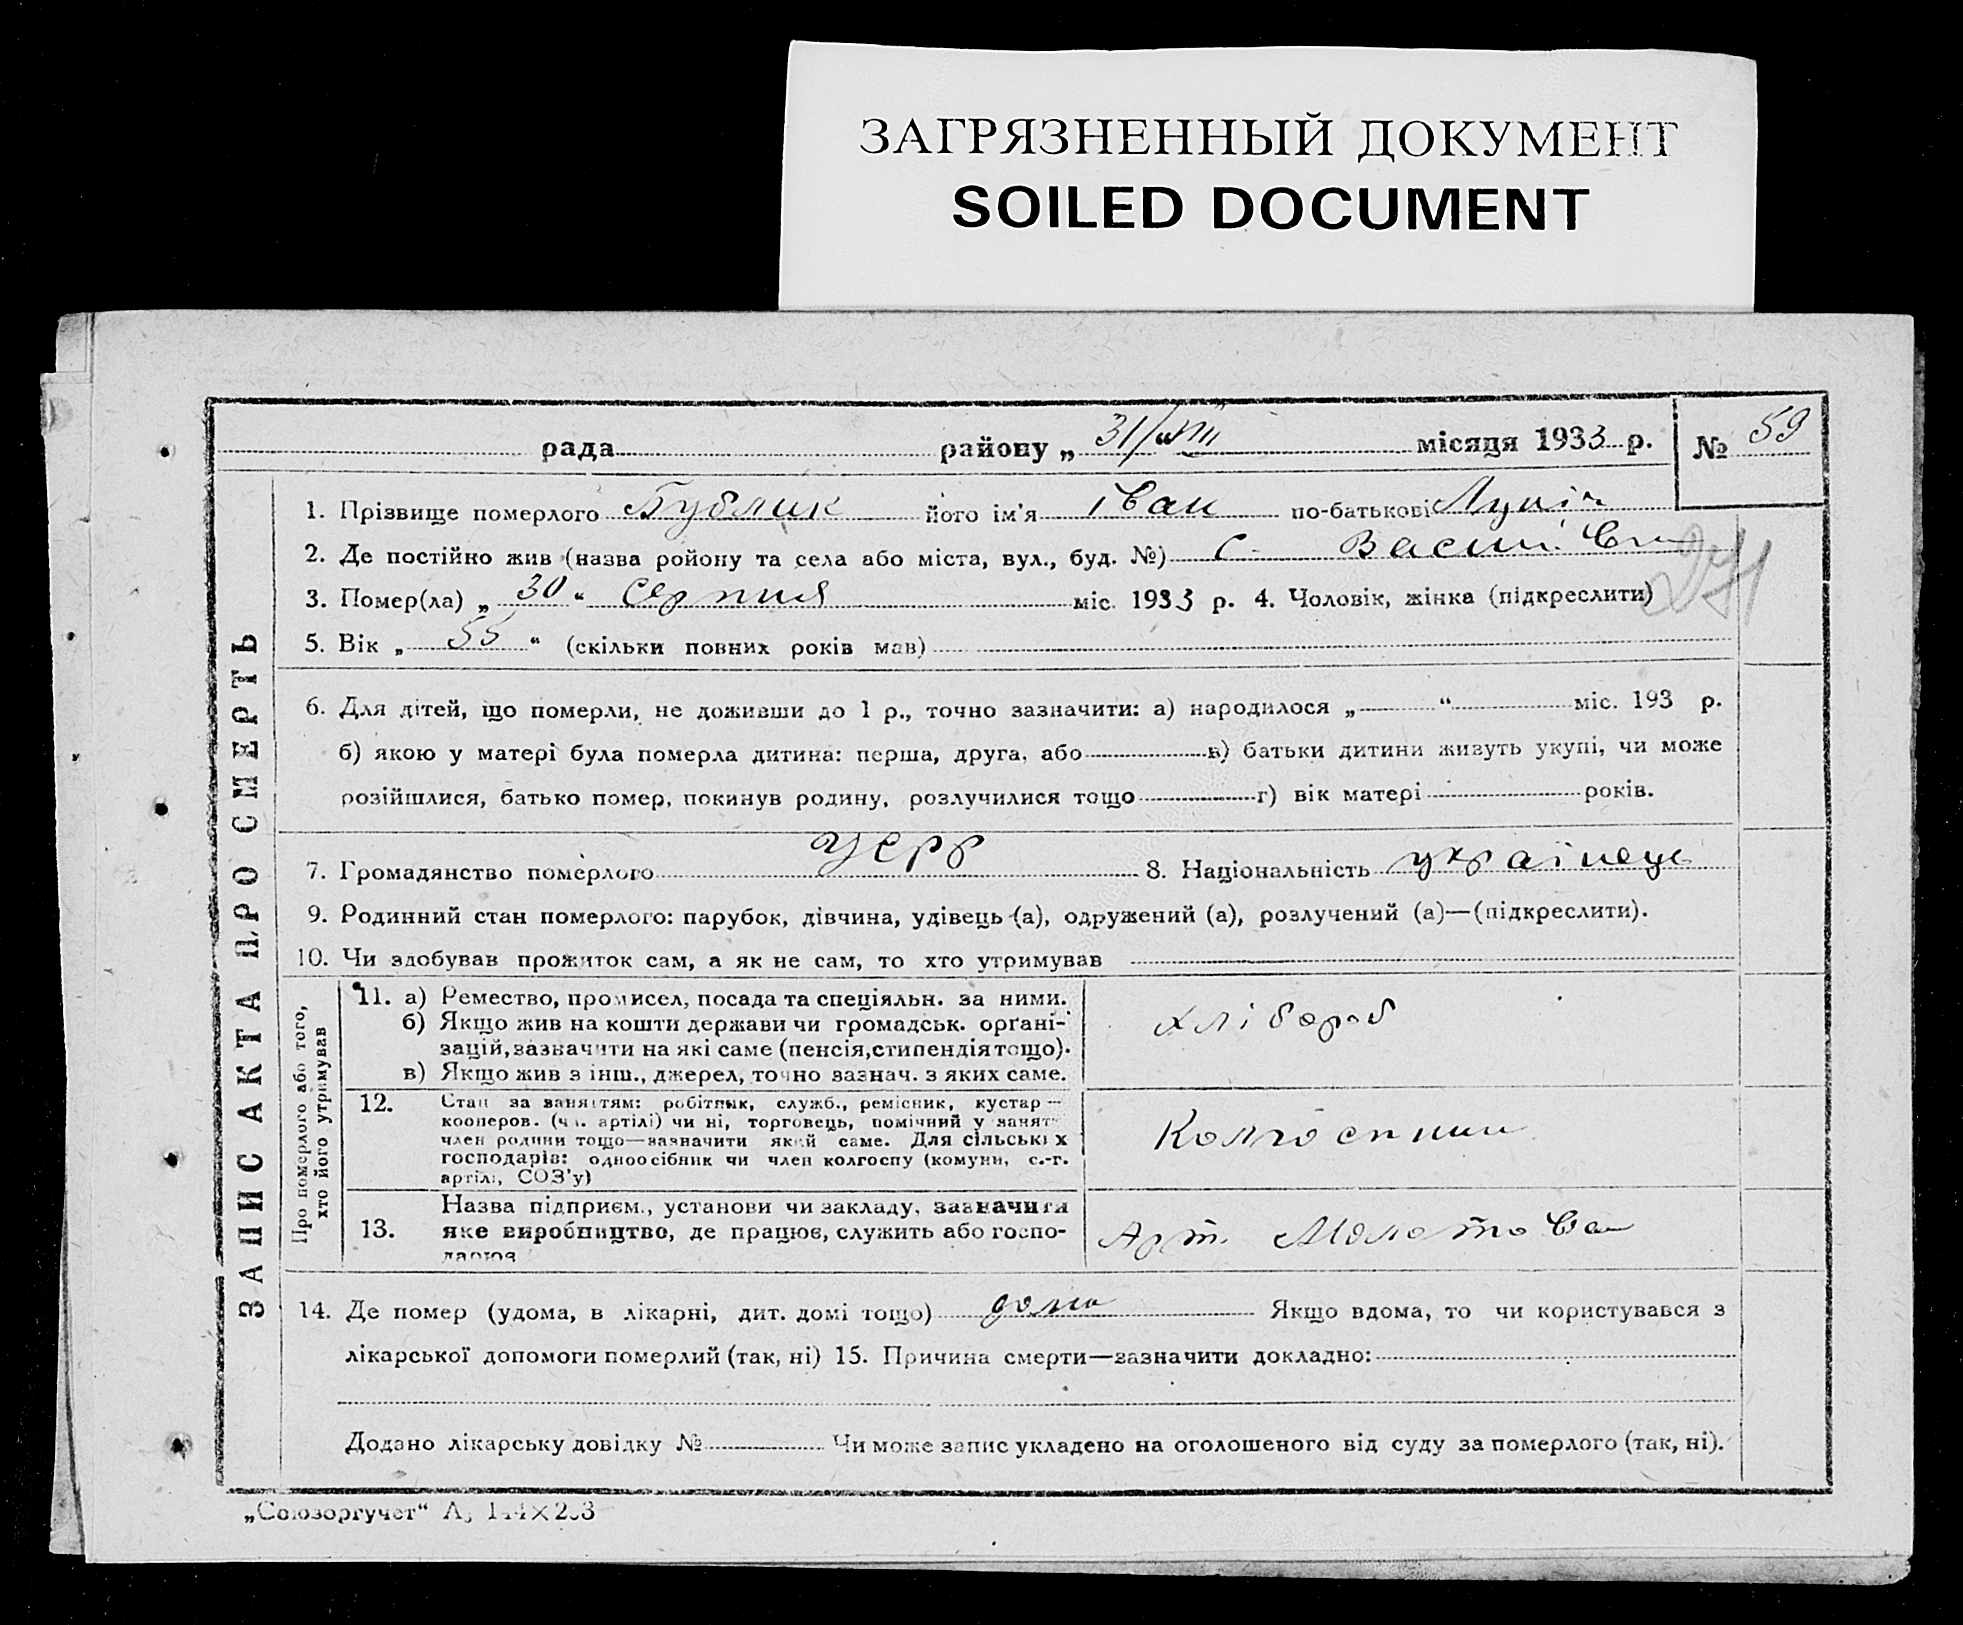 ЗАГРЯЗНЕННЫЙ ДОКУМЕНТ
SOILED DOCUMENT
рада району „ 31/VIII місяця 1933 р. № 59
ЗАПИС АКТА ПРО СМЕРТЬ
1. Прізвище померлого Бублик його ім'я Іван по-батькові
2. Де постійно жив (назва ройону та села або міста, вул., буд. №) с.
271
3. Помер(ла) „ 30 “ серпня міс. 1933 р. 4. Чоловік, жінка (підкреслити)
5. Вік „ 55 “ (скільки повних років мав)
6. Для дітей, що померли, не доживши до 1 р., точно зазначити: а) народилося „ “ міс. 193 р.
б) якою у матері була померла дитина: перша, друга, або в) батьки дитини живуть укупі, чи може
розійшлися, батько помер, покинув родину, розлучилися тощо г) вік матері років.
7. Громадянство померлого УСРР 8. Національність українець
9. Родинний стан померлого: парубок, дівчина, удівець (а), одружений (а), розлучений (а)—(підкреслити).
10. Чи здобував прожиток сам, а як не сам, то хто утримував
Про померлого або того,
хто його утримував
11. а) Ремество, промисел, посада та спеціяльн. за ними.
б) Якщо жив на кошти держави чи громадськ. орґані-
зацій, зазначити на які саме (пенсія, стипендія тощо).
в) Якщо жив з інш., джерел, точно зазнач. з яких саме.
хлібороб
12. Стан за заняттям: робітник, служб., ремісник, кустар—
кооперов. (чл. артілі) чи ні, торговець, помічний у занят
член родини тощо—зазначити який саме. Для сільських
господарів: одноосібник чи член колгоспу (комуни, с.-г.
артілі, СОЗ'у)
Колгоспник
13. Назва підприєм., установи чи закладу, зазначити
яке виробництво, де працює, служить або госпо-
дарює
Арт. Молотова
14. Де помер (удома, в лікарні, дит. домі тощо) дома Якщо вдома, то чи користувався з
лікарської допомоги померлий (так, ні) 15. Причина смерти—зазначити докладно:
Додано лікарську довідку № Чи може запис укладено на оголошеного від суду за померлого (так, ні).
„Союзоргучет“